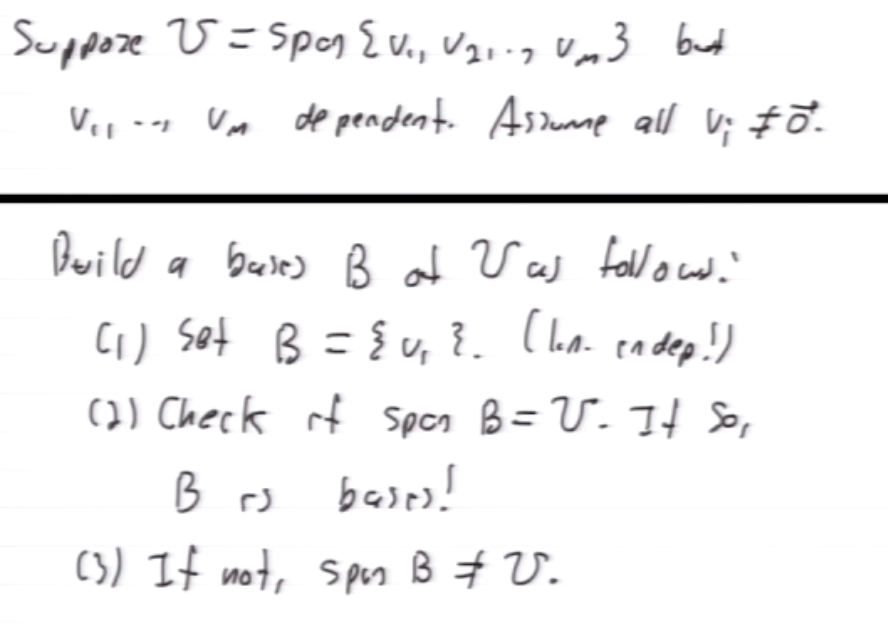 Suppose V = span {v₁, v₂, .., vₘ} but
v₁, .., vₘ dependent. Assume all vᵢ ≠ 0⃗.
Build a basis B of V as follows:
(1) Set B = {v₁}. (lin. indep!)
(2) Check if span B = V. If so,
B is basis!
(3) If not, span B ≠ V.